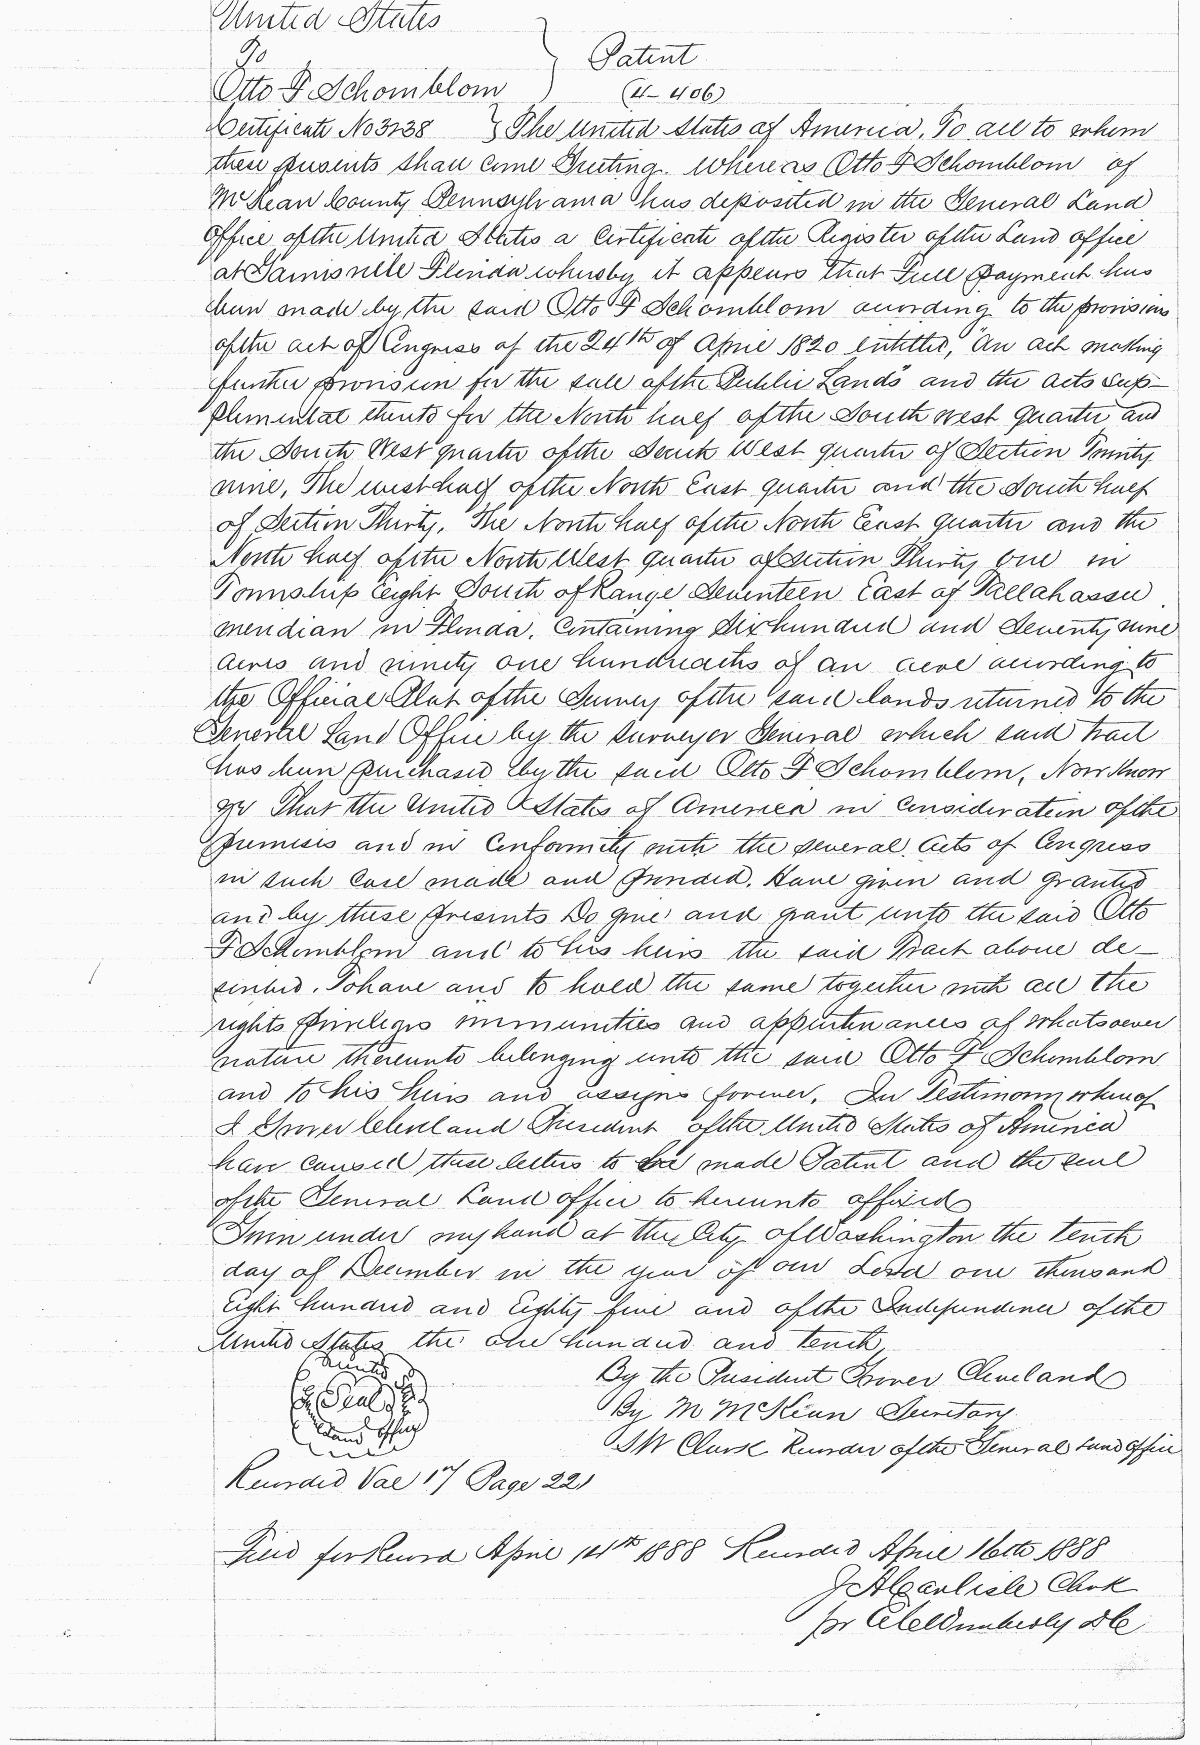 United States
To
Otto F Schomblom
Patent
(4-406)
Certificate No 3238 } The United States of America, To all to whom
these presents shall come Greeting. Whereas Otto F Schomblom of
McKean County Pennsylvania has deposited in the General Land
Office of the United States a Certificate of the Register of the Land office
at Gainesville Florida whereby it appears that Full payment has
been made by the said Otto F Schomblom according to the provisions
of the act of Congress of the 24th of April 1820 entitled, "An act making
further provision for the sale of the Public Lands" and the acts sup-
plemental thereto for the North half of the South west quarter and
the South West quarter of the South West quarter of Section Twenty
nine, The west half of the North East quarter and the South half
of Section Thirty, The North half of the North East quarter and the
North half of the North West quarter of Section Thirty One in
Township Eight South of Range Seventeen East of Tallahassee
meridian in Florida, Containing Six hundred and Seventy nine
acres and ninety one hundredths of an acre according to
the Official Plat of the Survey of the said lands returned to the
General Land Office by the Surveyor General which said tract
has been purchased by the said Otto F Schomblom, Now Know
ye That the United States of America in consideration of the
premises and in Conformity with the several Acts of Congress
in such Case made and provided. Have given and granted
and by these presents Do give and grant unto the said Otto
F Schomblom and to his heirs the said Tract above de-
scribed. To have and to hold the same together with all the
rights privileges immunities and appurtenances of whatsoever
nature thereunto belonging unto the said Otto F Schomblom
and to his heirs and assigns forever. In Testimony whereof
I Grover Cleveland President of the United States of America
have caused these letters to be made Patent and the seal
of the General Land office to hereunto affixed
Given under my hand at the City of Washington the tenth
day of December in the year of our Lord one thousand
Eight hundred and Eighty five and of the Independence of the
United States the one hundred and tenth,
United S
Seal
Land Office
By the President Grover Cleveland
By M McKean Secretary
S W Clark Recorder of the General Land office
Recorded Vol 17 Page 221
Filed for Record April 14th 1888 Recorded April 16th 1888
J A Carlisle Clerk
pr Wimberly D C